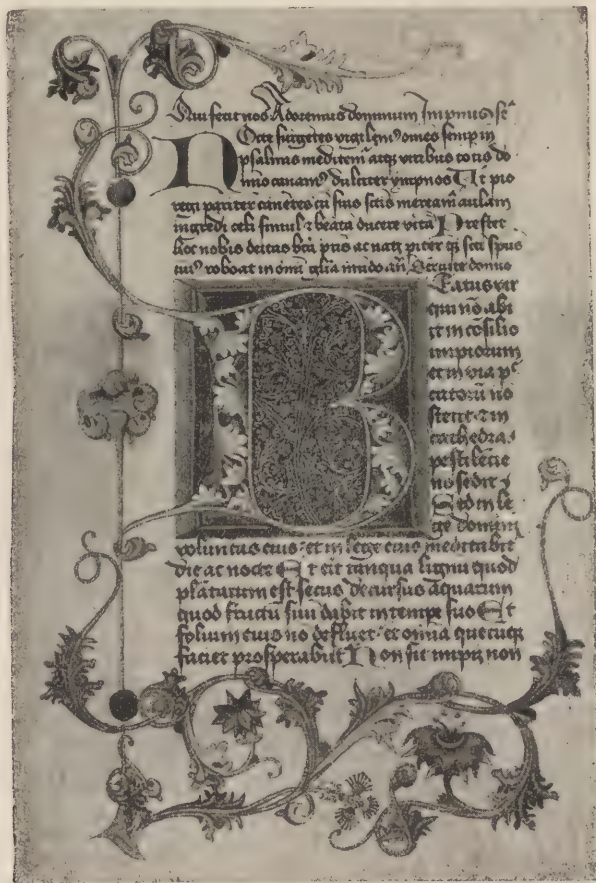 Qui fecit nos Adoremus dominum Impnus
Octe surgetes vigilem⁹ omes semp in
N psalmis meditem atq viribus totis do
mino canam⁹ dulciter ympnos Ut pio
regi pariter canetes cu suis sctis meream aulam
ingredi celi simul et beata ducere vita Prestet
hoc nobis deitas bta pris ac nati piter qz scti spus
cui⁹ reboat in omi glia mudo an Servite domno
Beatus vir
qui no abi
it in cosilio
impiorum
et in via pc
catoru no
stetit et in
cathedra
pestilecie
no sedit
Sed in le
ge domini
voluntas eius et in lege eius meditabit
die ac nocte Et erit tanqua lignu quod
plātatum est secus decursus aquarum
quod fructu suu dabit in tempe suo Et
folyum eius no defluet et omia quecuqz
faciet prosperabūt Non sic impij non